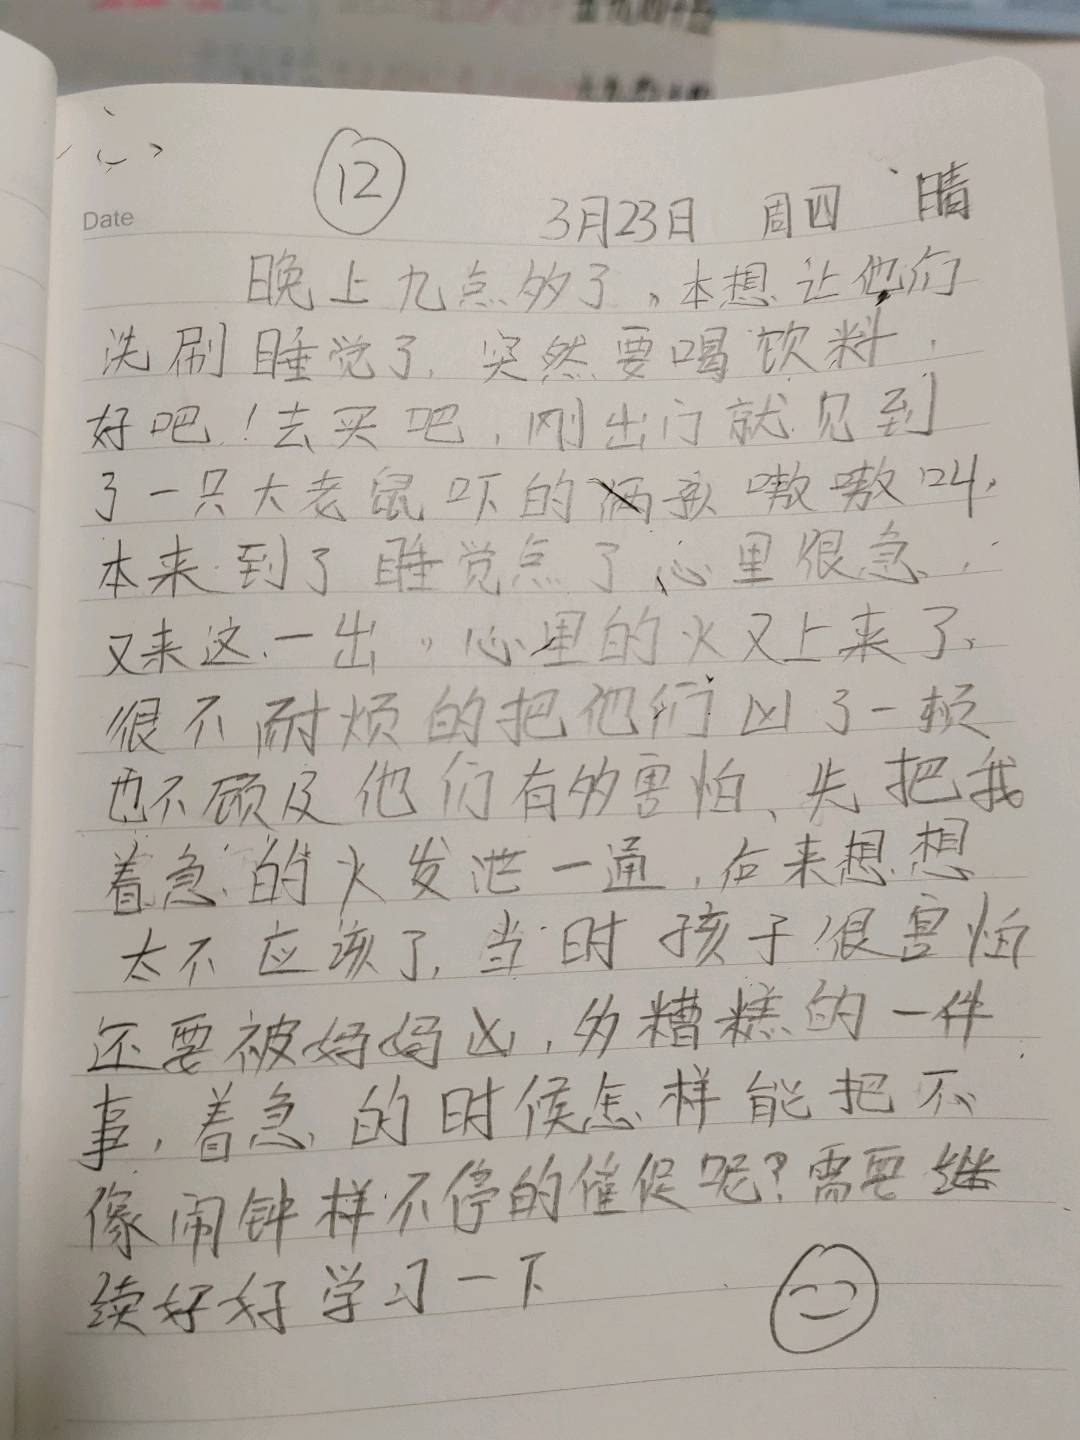 12
Date
3月23日 周四 晴
晚上九点多了,本想让他们
洗刷睡觉了,突然要喝饮料,
好吧!去买吧,刚出门就见到
了一只大老鼠吓的俩孩嗷嗷叫,
本来到了睡觉点了心里很急,
又来这一出,心里的火又上来了,
很不耐烦的把他们凶了一顿
也不顾及他们有多害怕、先把我
着急的火发泄一通,后来想想
太不应该了,当时孩子很害怕
还要被妈妈凶,多糟糕的一件
事,着急的时候怎样能把不
像闹钟样不停的催促呢?需要继
续好好学习一下